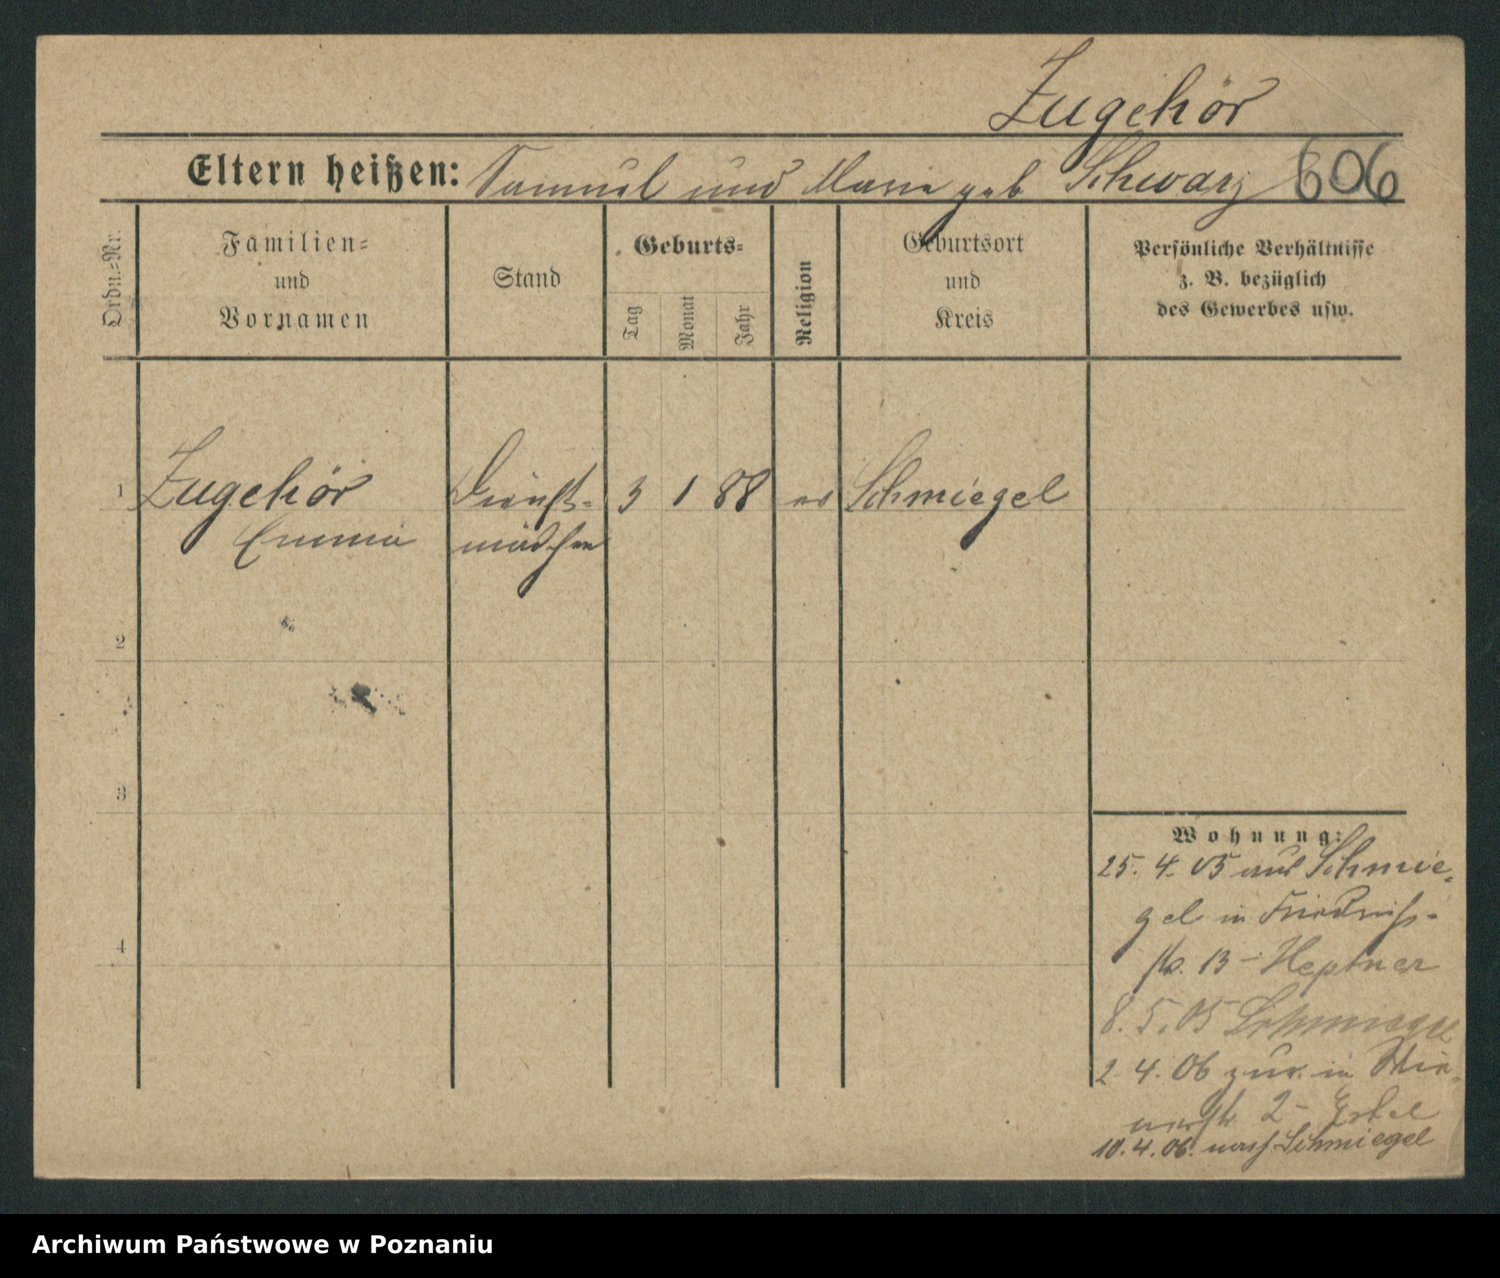 Zugehör
Eltern heißen: Samuel und Marie geb Schwarz 606
Ordn.=Nr.
Familien=
und
Vornamen
Stand
Geburts=
Tag
Monat
Jahr
Religion
Geburtsort
und
Kreis
Persönliche Verhältnisse
z. B. bezüglich
des Gewerbes usw.
1 Zugehör Dienst- 3 1 88 ev Schmiegel
Emma mädchen
2
3
4
Wohnung:
25. 4. 05 aus Schmie-
gel in Friedrichs-
str. 13 - Heptner
8. 5. 05 Schmiegel
2. 4. 06 zur. in
2 -
10. 4. 06. nach Schmiegel
Archiwum Państwowe w Poznaniu